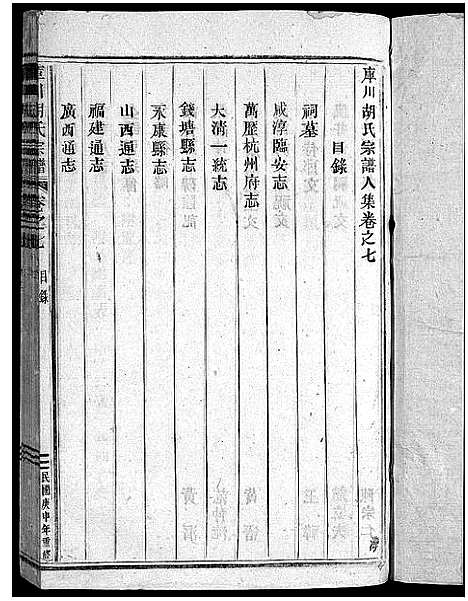 庫川胡氏宗譜人集卷之七
目錄
祠墓
咸淳臨安志
萬歷杭州府志
大淸一統志
錢塘縣志
永康縣志
山西通志
福建通志
廣西通志
庫川胡氏宗譜
卷之七
目錄
民國庚申年重修